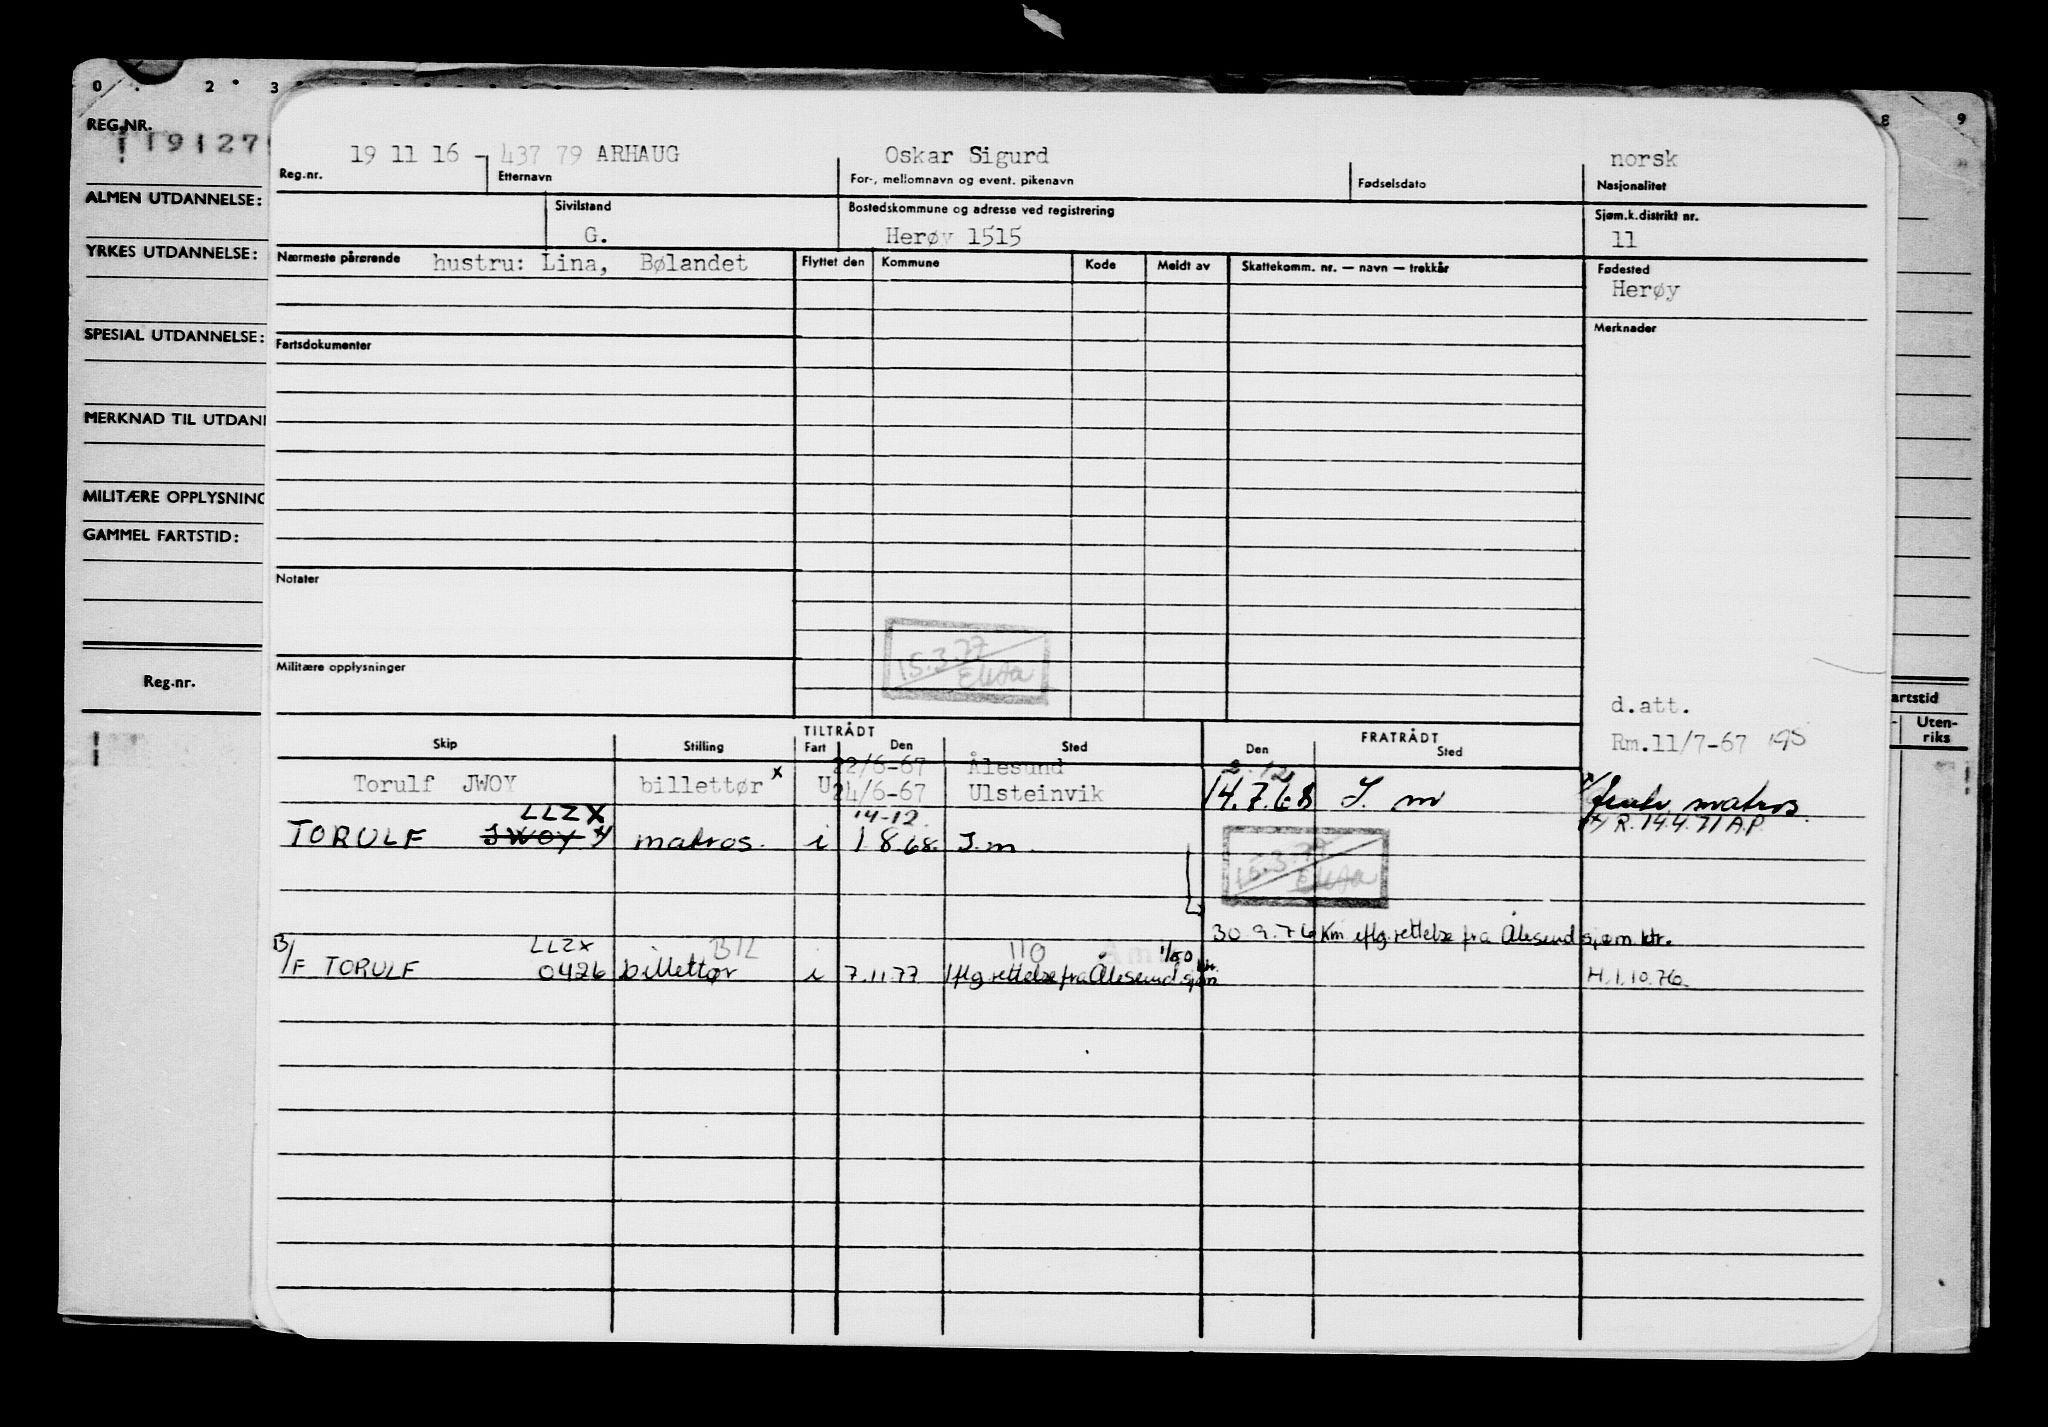 0 2 3 8 9
REG.NR.
19127
ALMEN UTDANNELSE:
YRKES UTDANNELSE:
SPESIAL UTDANNELSE:
MERKNAD TIL UTDAN
MILITÆRE OPPLYSNING
GAMMEL FARTSTID:
Reg.nr.
artstid
Uten-
riks
19 11 16 - 437 79 ARHAUG Oskar Sigurd norsk
Reg.nr. Etternavn For-, mellomnavn og event. pikenavn Fødselsdato Nasjonalitet
Sivilstand Bostedskommune og adresse ved registrering Sjøm.k.distrikt nr.
G. Herøy 1515 11
Nærmeste pårørende hustru: Lina, Bølandet Flyttet den Kommune Kode Meldt av Skattekomm. nr. — navn — trekkår Fødested
Herøy
Merknader
Fartsdokumenter
Notater
15.3.77
Militære opplysninger
d.att.
Rm.11/7-67
TILTRÅDT FRATRÅDT
Skip Stilling Fart Den Sted Den Sted
22/6-67 Ålesund 2.12
Torulf JWOY billettør x U 24/6-67 Ulsteinvik 14.7.68 S. m
matros.
LLZX 14-12. R. 14.4.71 A.P.
TORULF JWOY matros. i 1 8.68. S.m.
15.3.77
30.9.76 Km iflg rettelse fra Ålesund sjøm.ktr.
B/F TORULF LLZX 0426 BIL billettør i 7.11.77 110 1/80 Iflg rettelse fra Ålesund sjøm ktr. H.1.10.76.